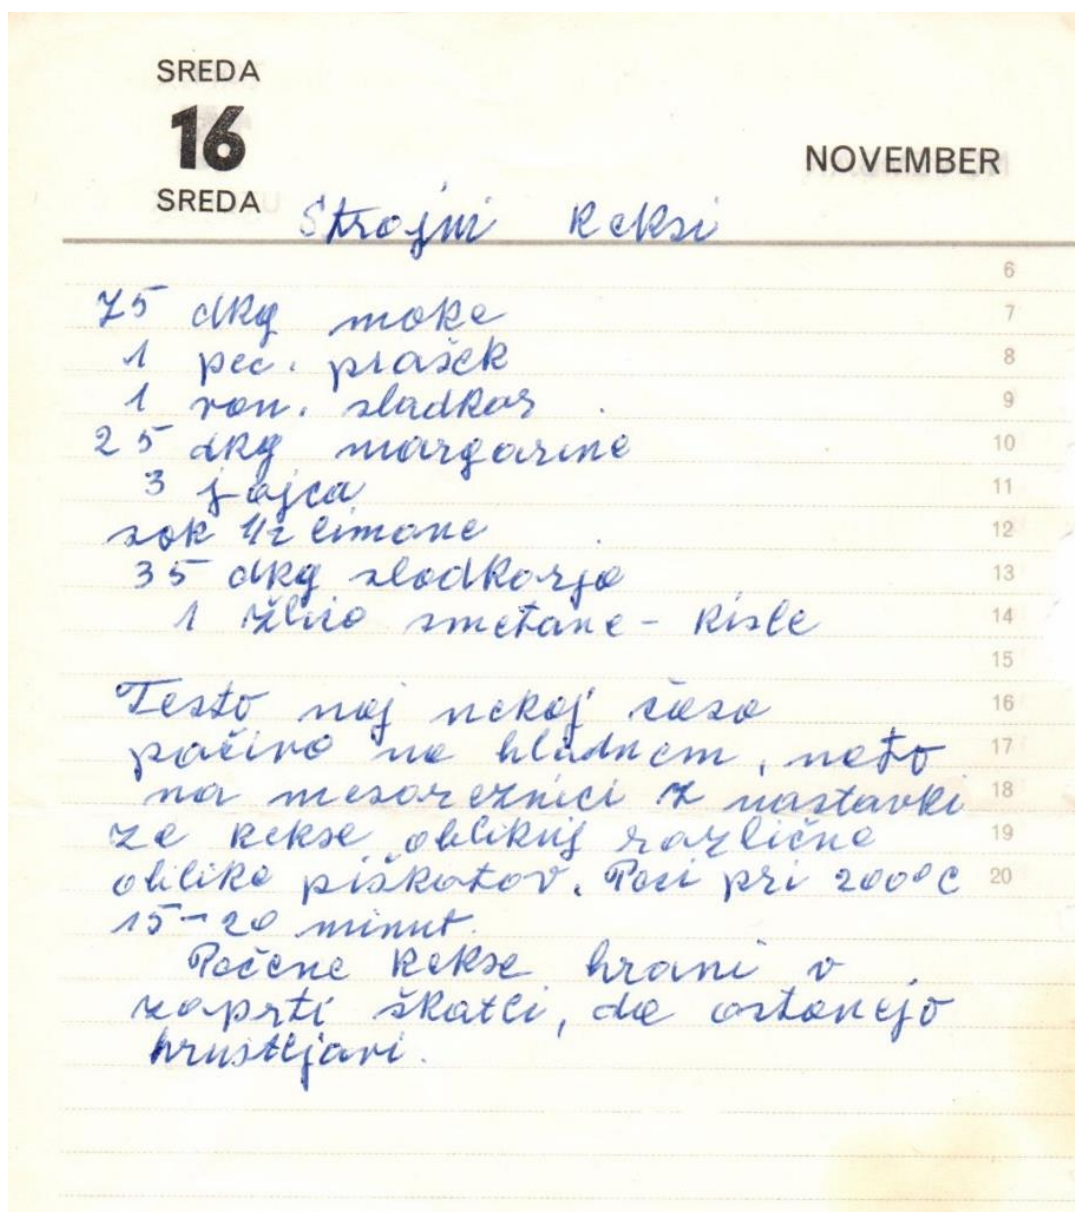 SREDA
16
SREDA
NOVEMBER
Strojni keksi
6
75 dkg moke
7
1 pec. prašek
8
1 van. sladkor
9
25 dkg margarine
10
3 jajca
11
sok 1/2 limone
12
35 dkg sladkorja
13
1 žlico smetane - kisle
14
15
Testo naj nekaj časa
16
počiva na hladnem, nato
17
na mesoreznici z nastavki
18
za kekse oblikuj različne
19
oblike piškotov. Peci pri 200°C
20
15-20 minut.
Pečene kekse hrani v
zaprti škatli, da ostanejo
hrustljavi.